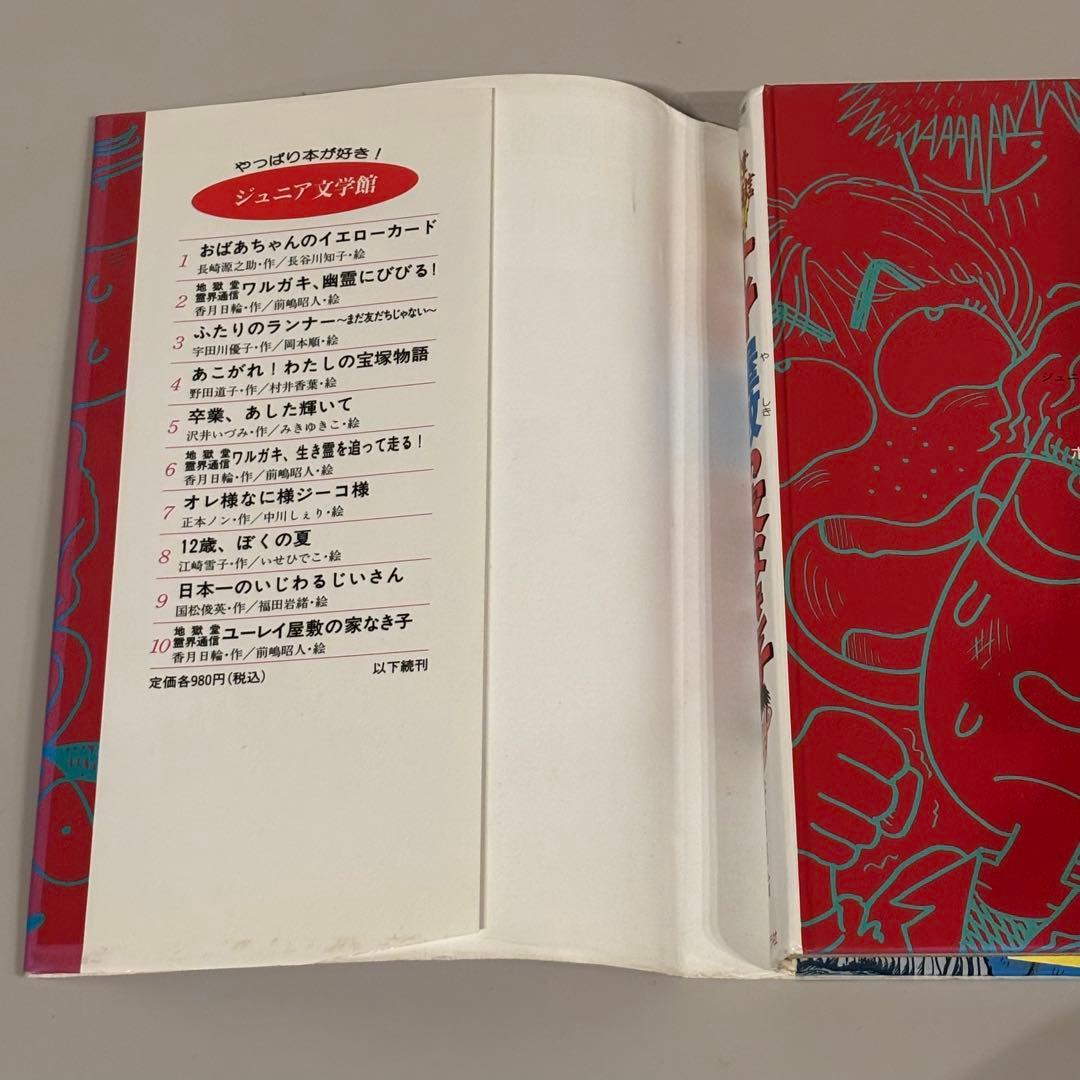 やっぱり本が好き!
ジュニア文学館
1 おばあちゃんのイエローカード
長崎源之助・作/長谷川知子・絵
2 地獄堂霊界通信 ワルガキ、幽霊にびびる!
香月日輪・作/前嶋昭人・絵
3 ふたりのランナー〜まだ友だちじゃない〜
宇田川優子・作/岡本順・絵
4 あこがれ!わたしの宝塚物語
野田道子・作/村井香葉・絵
5 卒業、あした輝いて
沢井いづみ・作/みきゆきこ・絵
6 地獄堂霊界通信 ワルガキ、生き霊を追って走る!
香月日輪・作/前嶋昭人・絵
7 オレ様なに様ジーコ様
正本ノン・作/中川しぇり・絵
8 12歳、ぼくの夏
江崎雪子・作/いせひでこ・絵
9 日本一のいじわるじいさん
国松俊英・作/福田岩緒・絵
10 地獄堂霊界通信 ユーレイ屋敷の家なき子
香月日輪・作/前嶋昭人・絵
定価各980円(税込) 以下続刊
やしき
ジュニ